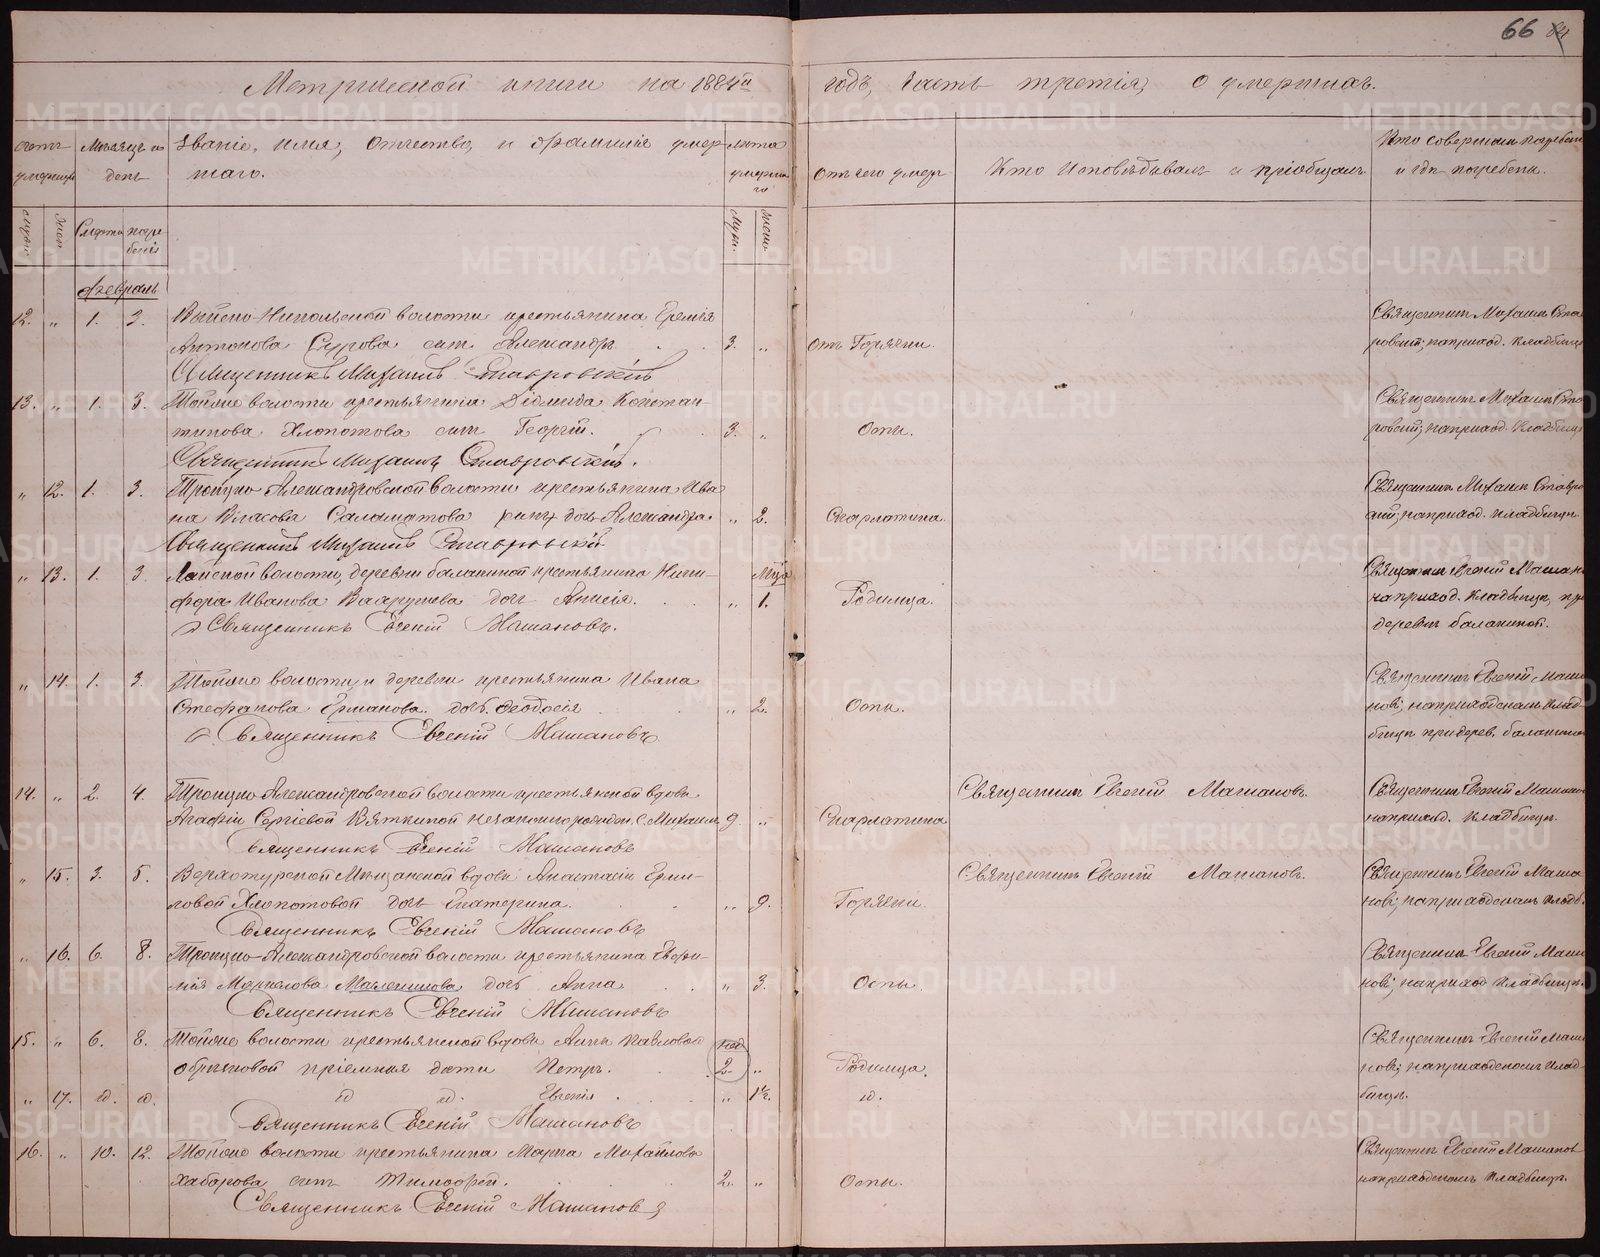 66 84
Метрической книги на 1884й годъ, часть третія, о умершихъ.
счетъ умершихъ
Мѣсяцъ и день
Званіе, имя, отчество, и фамилія умершаго.
лета умершаго
Отъ чего умеръ
Кто исповѣдывалъ и пріобщалъ
Кто совершалъ погребеніе и гдѣ погребены.
Муж. Жен. Смерти погребенія Муж. Жен.
Февраль
12. „ 1. 3. Выйско-Никольской волости крестьянина Еремея
Антонова Сурова сынъ Александръ 3. „ Отъ Горячки.
Священникъ Михаилъ Ставровскій
Священникъ Михаилъ Ставровскій; на приход. кладбищѣ
13. „ 1. 3. Тойже волости крестьянина Діомида Констан-
тинова Хлопотова сынъ Георгій. 3. „ Оспы.
Священникъ Михаилъ Ставровскій.
Священникъ Михаилъ Ставровскій; на приход. кладбищѣ
„ 12. 1. 3. Троицко-Александровской волости крестьянина Ива
на Власова Саламатова дочь Александра. „ 2. Скарлатина.
Священникъ Михаилъ Ставровскій
Священникъ Михаилъ Ставровскій; на приход. кладбищѣ
„ 13. 1. 3. Лайской волости, деревни Балакиной крестьянина Ники-
фора Иванова дочь Анисія. „ 1. Родимца.
Священникъ Евгеній Машановъ.
Священникъ Евгеній Машановъ
на приход. кладбищѣ, при
деревнѣ Балакиной.
„ 14. 1. 3. Тойже волости и деревни крестьянина Ивана
Стефанова Ермакова дочь Ѳеодосія „ 2. Оспы.
Священникъ Евгеній Машановъ
Священникъ Евгеній Маша
новъ; на приходскомъ клад-
бищѣ при дерев. Балакиной
14. „ 2. 4. Троицко-Александровской волости крестьянской вдовы
Агафіи Сергіевой Вяткиной незаконнорожден. с. Михаилъ 9. „ Скарлатина
Священникъ Евгеній Машановъ
Священникъ Евгеній Машановъ.
Священникъ Евгеній Машановъ
на приход. кладбищѣ.
„ 15. 3. 5. Верхотурской Мѣщанской вдовы Анастасіи Ерми-
ловой Хлопотовой дочь Екатерина. „ 9. Горячки.
Священникъ Евгеній Машановъ
Священникъ Евгеній Машановъ.
Священникъ Евгеній Маша
новъ; на приходскомъ кладб.
„ 16. 6. 8. Троицко-Александровской волости крестьянина Евфи-
мія Маркелова Масленикова дочь Анна „ 3. Оспы.
Священникъ Евгеній Машановъ
Священникъ Евгеній Маша
новъ; на приход кладбищѣ.
15. „ 6. 8. Тойже волости крестьянской вдовы Анны Павловой
пріемныя дети Петръ. нед 2. „ Родимца.
„ 17. id. id. id id. Евгенія „ 1½. id.
Священникъ Евгеній Машановъ
Священникъ Евгеній Маша
новъ; на приходскомъ клад-
бищѣ.
16. „ 10. 12. Тойже волости крестьянина Марка Михайлова
Хабарова сынъ Тимофей. 2. „ Оспы.
Священникъ Евгеній Машановъ
Священникъ Евгеній Машановъ
на приходскомъ кладбищѣ.
METRIKI.GASO-URAL.RU